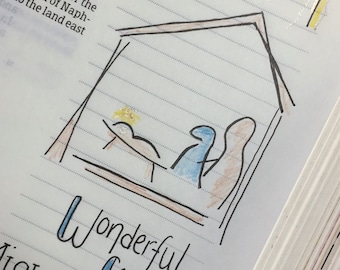 f the
of Naph-
o the land east
Wonderful